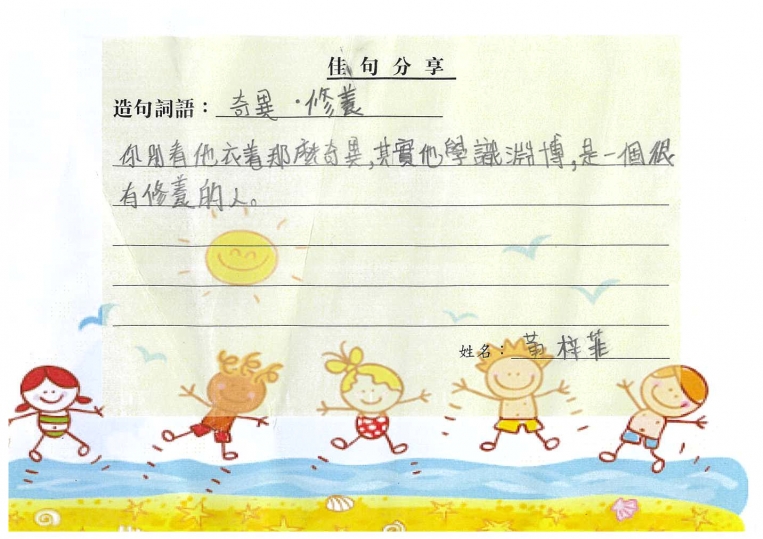 佳句分享
造句詞語：奇異．修養
你別看他衣着那麼奇異，其實他學識淵博，是一個很
有修養的人。
姓名：黃梓菲